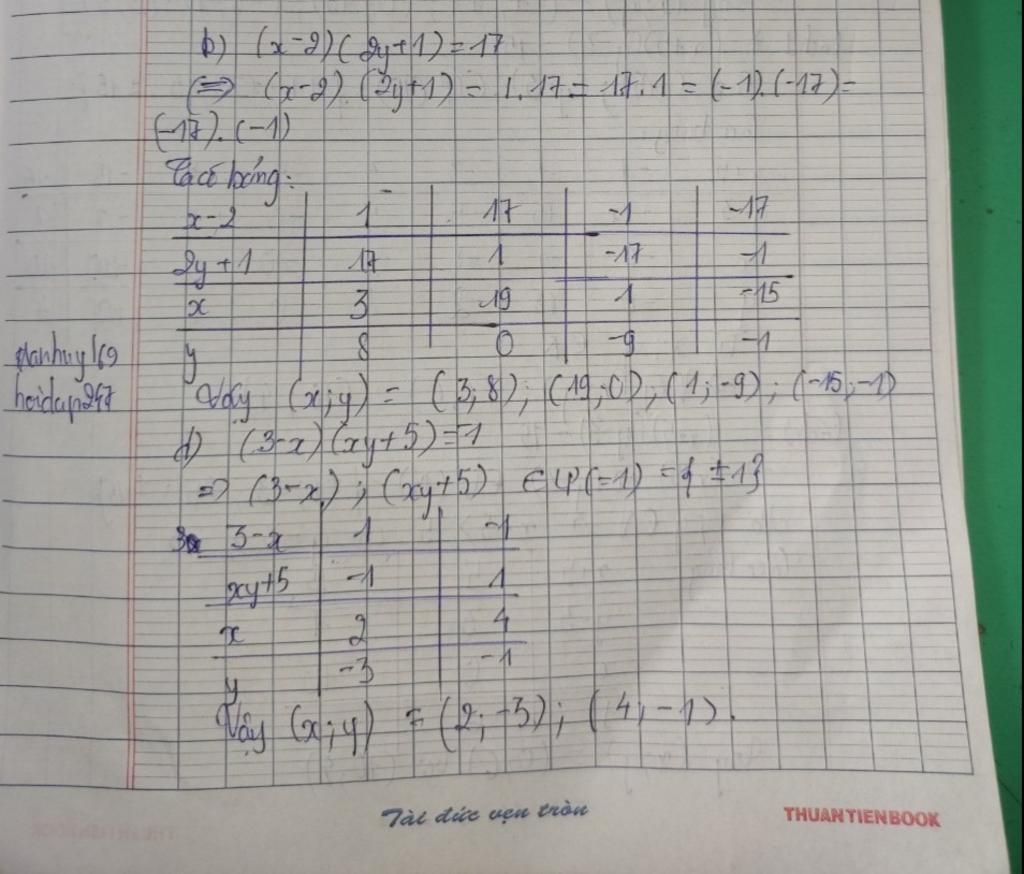 b) (x-2)(2y+1)=17
(⇒) (x-2).(2y+1) = 1.17 = 17.1 = (-1).(-17) =
(-17).(-1)
Ta có bảng:
x-2 1 17 -1 -17
2y+1 17 1 -17 -1
x 3 19 1 -15
y 8 0 -9 -1
hoidap247
Vậy (x;y) = (3;8); (19;0); (1;-9); (-15;-1)
d) (3-x)(xy+5)=-1
=> (3-x); (xy+5) ∈ Ư(-1) = { ±1}
3-x 1 -1
xy+5 -1 1
x 2 4
y -3 -1
Vậy (x;y) = (2;-3); (4;-1).
Tài đức vẹn tròn
THUANTIENBOOK